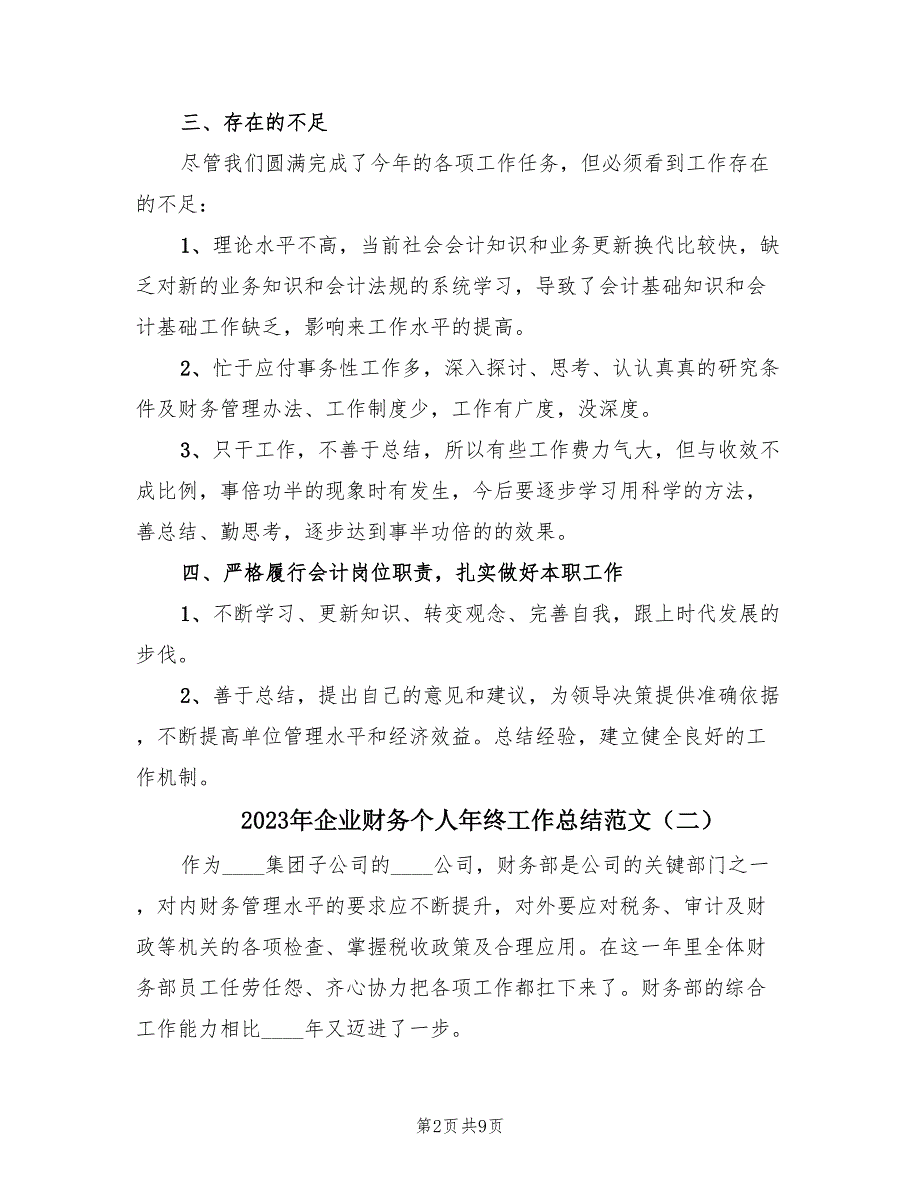 三、存在的不足
尽管我们圆满完成了今年的各项工作任务，但必须看到工作存在
的不足：
1、理论水平不高，当前社会会计知识和业务更新换代比较快，缺
乏对新的业务知识和会计法规的系统学习，导致了会计基础知识和会
计基础工作缺乏，影响来工作水平的提高。
2、忙于应付事务性工作多，深入探讨、思考、认认真真的研究条
件及财务管理办法、工作制度少，工作有广度，没深度。
3、只干工作，不善于总结，所以有些工作费力气大，但与收效不
成比例，事倍功半的现象时有发生，今后要逐步学习用科学的方法，
善总结、勤思考，逐步达到事半功倍的的效果。
四、严格履行会计岗位职责，扎实做好本职工作
1、不断学习、更新知识、转变观念、完善自我，跟上时代发展的
步伐。
2、善于总结，提出自己的意见和建议，为领导决策提供准确依据
，不断提高单位管理水平和经济效益。总结经验，建立健全良好的工
作机制。
2023年企业财务个人年终工作总结范文（二）
作为____集团子公司的____公司，财务部是公司的关键部门之一
，对内财务管理水平的要求应不断提升，对外要应对税务、审计及财
政等机关的各项检查、掌握税收政策及合理应用。在这一年里全体财
务部员工任劳任怨、齐心协力把各项工作都扛下来了。财务部的综合
工作能力相比____年又迈进了一步。
第2页 共9页